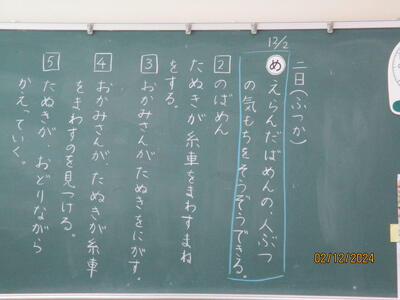 12/2
二日(ぶつか)
めえらんだばめんの、人ぶつ
の気もちをそうぞうできる。
2のばめん
たぬきが糸車をまわすまね
をする。
3おかみさんがたぬきをにがす。
4おかみさんが、たぬきが糸車
をまわすのを見つける。
5たぬきが、おどりながら
かえっていく。
02/12/2024